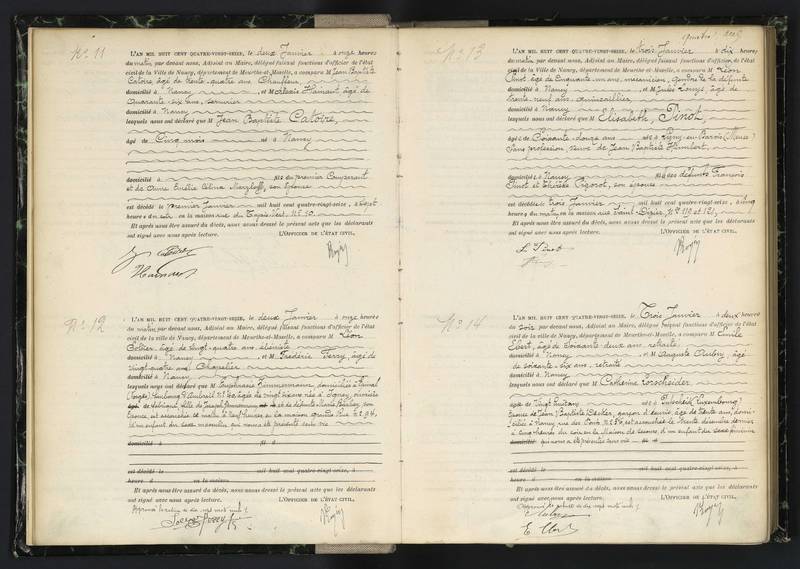 N° 11
L'AN MIL HUIT CENT QUATRE-VINGT-SEIZE, le deux Janvier à onze heures
du matin par devant nous, Adjoint au Maire, délégué faisant fonctions d'officier de l'état
civil de la Ville de Nancy, département de Meurthe-et-Moselle, a comparu M Jean Baptiste
Catoire, âgé de trente-quatre ans Chauffeur,
domicilié à Nancy et M Alexis Hainaut, âgé de
quarante six ans, serrurier
domicilié à Nancy
lesquels nous ont déclaré que M Jean Baptiste Catoire,
âgé de Cinq mois né à Nancy
domicilié à fils du premier Comparant
et de Anne Emilie Célina son épouse
est décédé le premier Janvier mil huit cent quatre-vingt-seize, à sept
heures du soir en la maison rue du Tapis Vert, N° 10
Et après nous être assuré du décès, nous avons dressé le présent acte que les déclarants
ont signé avec nous après lecture. L'OFFICIER DE L'ÉTAT CIVIL,
Hainaut
N° 12
L'AN MIL HUIT CENT QUATRE-VINGT-SEIZE, le deux Janvier à onze heures
du matin par devant nous, Adjoint au Maire, délégué faisant fonctions d'officier de l'état
civil de la Ville de Nancy, département de Meurthe-et-Moselle, a comparu M Léon
âgé de vingt-quatre ans, ébéniste
domicilié à Nancy et M Frédéric Ferry, âgé de
vingt-quatre ans, Chapelier
domicilié à Nancy
lesquels nous ont déclaré que M Euphrasie Zimmermann, domiciliée à Epinal
(Vosges) Faubourg d'Ambrail N° âgée de vingt six ans née à
épouse, est accouchée ce matin à sept heures en la maison grande Rue N° 94,
d'un enfant du sexe masculin qui nous a été présenté sans vie
domicilié à fil d
est décédé le mil huit cent quatre-vingt-seize, à
heure d en la maison
Et après nous être assuré du décès, nous avons dressé le présent acte que les déclarants
ont signé avec nous après lecture. L'OFFICIER DE L'ÉTAT CIVIL,
Ferry
N° 13
L'AN MIL HUIT CENT QUATRE-VINGT-SEIZE, le trois Janvier à dix heures
du matin par devant nous, Adjoint au Maire, délégué faisant fonctions d'officier de l'état
civil de la Ville de Nancy, département de Meurthe-et-Moselle, a comparu M Léon
Pinot âgé de Cinquante un ans, mécanicien, gendre de la défunte
domicilié à Nancy et M Jules Louys, âgé de
trente neuf ans, quincaillier
domicilié à Nancy
lesquels nous ont déclaré que M Elisabeth, Pinot,
âgée de Soixante-douze ans née à Ligny-en-Barrois (Meuse)
Sans profession, veuve de Jean Baptiste Humbert,
domiciliée à Nancy fille des défunts François
Pinot et Thérèse Pigorot, son épouse
est décédée le trois Janvier mil huit cent quatre-vingt-seize, à cinq
heures du matin en la maison rue Saint-Dizier, N° 119 et 121,
Et après nous être assuré du décès, nous avons dressé le présent acte que les déclarants
ont signé avec nous après lecture. L'OFFICIER DE L'ÉTAT CIVIL,
L. Pinot
N° 14
L'AN MIL HUIT CENT QUATRE-VINGT-SEIZE, le Trois Janvier à deux heures
du soir par devant nous, Adjoint au Maire, délégué faisant fonctions d'officier de l'état
civil de la Ville de Nancy, département de Meurthe-et-Moselle, a comparu M Emile
Ebert, âgé de soixante deux ans, retraité
domicilié à Nancy et M Auguste Aubry, âgé
de soixante-six ans, retraité
domicilié à Nancy
lesquels nous ont déclaré que M Catherine Forscheider
âgée de vingt huit ans née à (Luxembourg)
Epouse de Jean Baptiste Becker, garçon d'écurie, âgé de trente ans, domi-
ciliée à Nancy rue des Ponts N° 54, est accouchée le trente décembre dernier
à cinq heures du soir en la Maison de secours d'un enfant du sexe féminin
domicilié à qui nous a été présenté sans vie fil d
est décédé le mil huit cent quatre-vingt-seize, à
heure d en la maison
Et après nous être assuré du décès, nous avons dressé le présent acte que les déclarants
ont signé avec nous après lecture. L'OFFICIER DE L'ÉTAT CIVIL,
E. Ebert